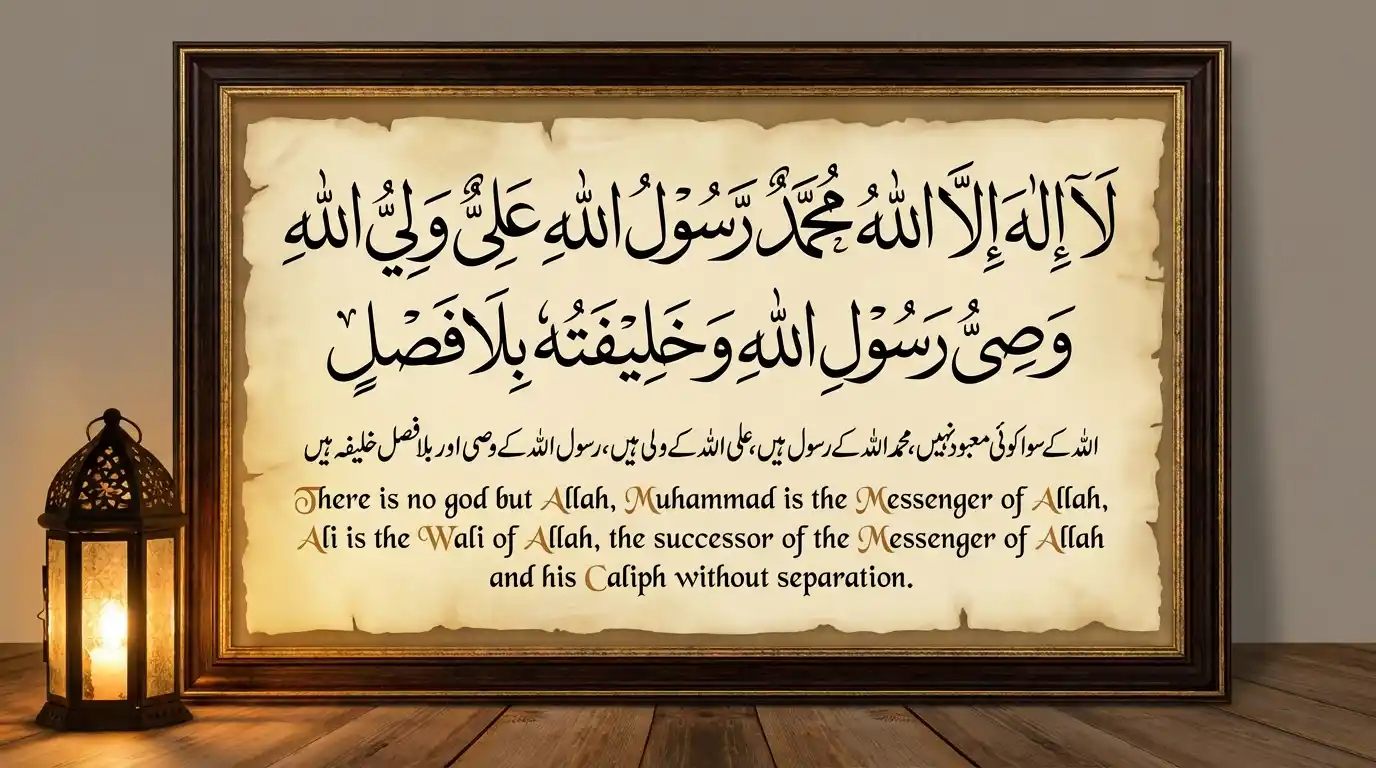 لَآ إِلٰهَ إِلَّا اللهُ مُحَمَّدٌ رَّسُوْلُ اللهِ عَلِیٌّ وَلِيُّ اللهِ
وَصِیُّ رَسُوْلِ اللهِ وَخَلِيْفَتُهٗ بِلَا فَصْلٍ
اللہ کے سوا کوئی معبود نہیں، محمد اللہ کے رسول ہیں، علی اللہ کے ولی ہیں، رسول اللہ کے وصی اور بلا فصل خلیفہ ہیں
There is no god but Allah, Muhammad is the Messenger of Allah,
Ali is the Wali of Allah, the successor of the Messenger of Allah
and his Caliph without separation.